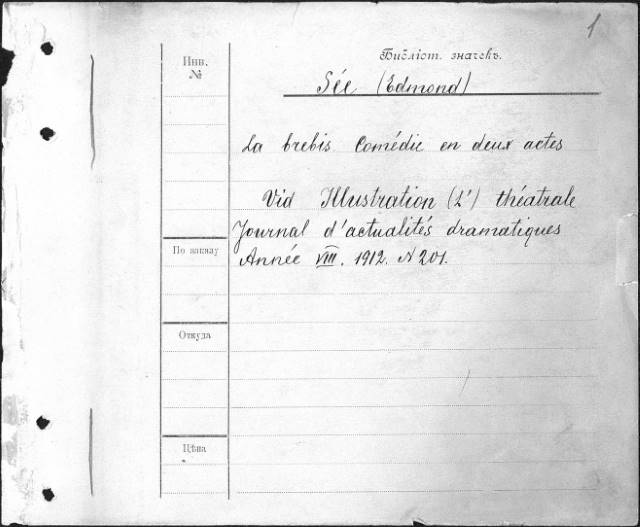 1
Библіот. значекъ.
Инв.
№
Sée (Edmond)
La brebis. Comédie en deux actes
Vid Illustration (L') théatrale
Journal d'actualités dramatiques
Année VIII. 1912. N 201.
По заказу
Откуда
Цѣна